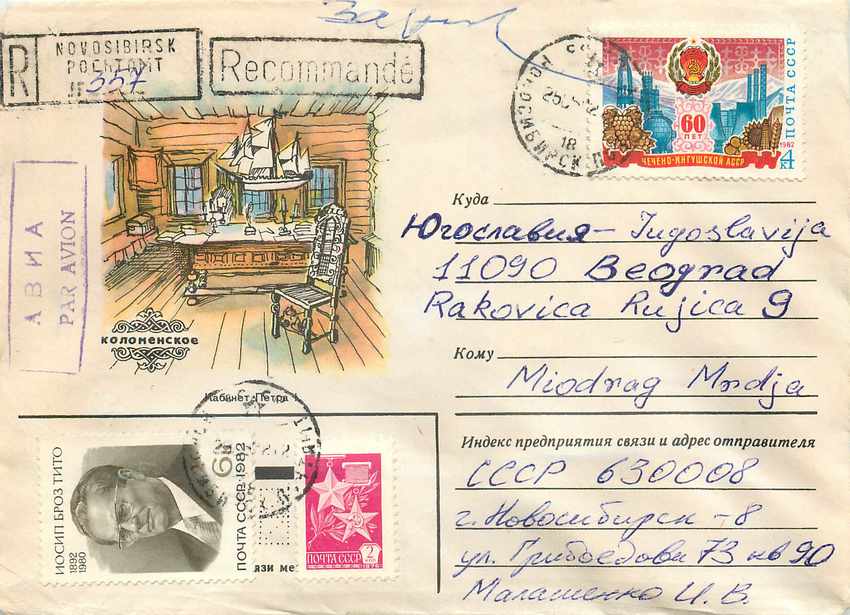 Заказное
R NOVOSIBIRSK
POCHTAMT
№ 357
Recommandé
АВИА
PAR AVION
60
ЛЕТ
ЧЕЧЕНО-ИНГУШСКОЙ АССР
ПОЧТА СССР
1982
4
К
НОВОСИБИРСК
18
КОЛОМЕНСКОЕ
Кабинет Петра I
Куда
Югославия - Jugoslavija
11090 Beograd
Rakovica Rujica 9
Кому
Miodrag Mrdja
Индекс предприятия связи и адрес отправителя
СССР 630008
г. Новосибирск-8
ул. Грибоедова 73 кв 90
Малашенко И. В.
ИОСИП БРОЗ ТИТО
1892
1980
6к
ПОЧТА СССР·1982
ПОЧТА СССР
2
1976
язи ме